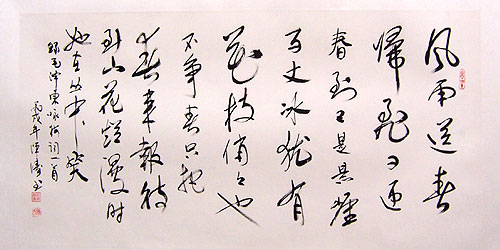 風雨送春
歸飛雪迎
春到已是懸崖
百丈冰猶有
花枝俏々也
不争春只把
春来報待
到山花爛漫时
她在丛中笑
録毛泽东咏梅词一首
丙戌年涛书